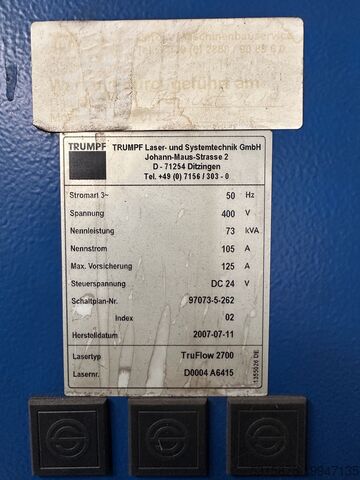 TRUMPF
TRUMPF Laser- und Systemtechnik GmbH
Johann-Maus-Strasse 2
D - 71254 Ditzingen
Tel. +49 (0) 7156 / 303 - 0
Stromart 3~ 50 Hz
Spannung 400 V
Nennleistung 73 kVA
Nennstrom 105 A
Max. Vorsicherung 125 A
Steuerspannung DC 24 V
Schaltplan-Nr. 97073-5-262
Index 02
Herstelldatum 2007-07-11
Lasertyp TruFlow 2700
Lasernr. D0004 A6415
1355026 DE